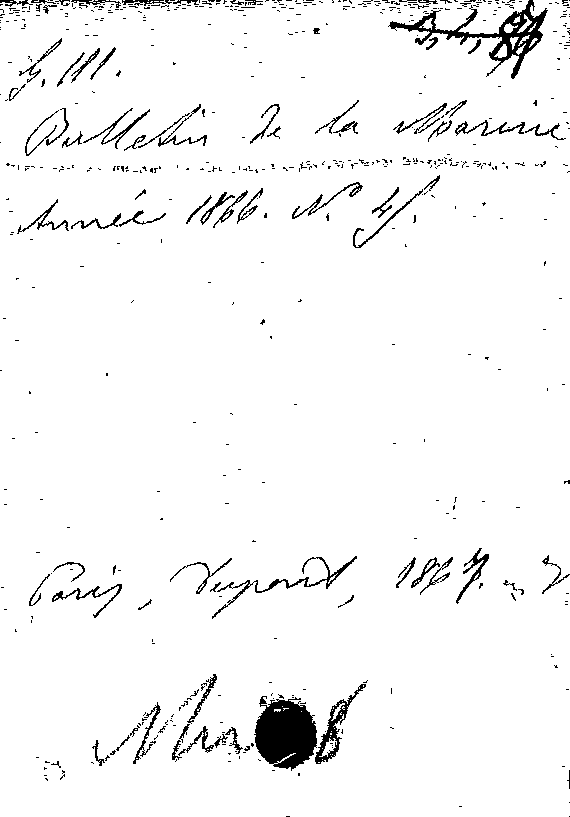 G. 111.
Bulletin de la Marine
Année 1866. No. 45.
Paris, Dupont, 1867. in